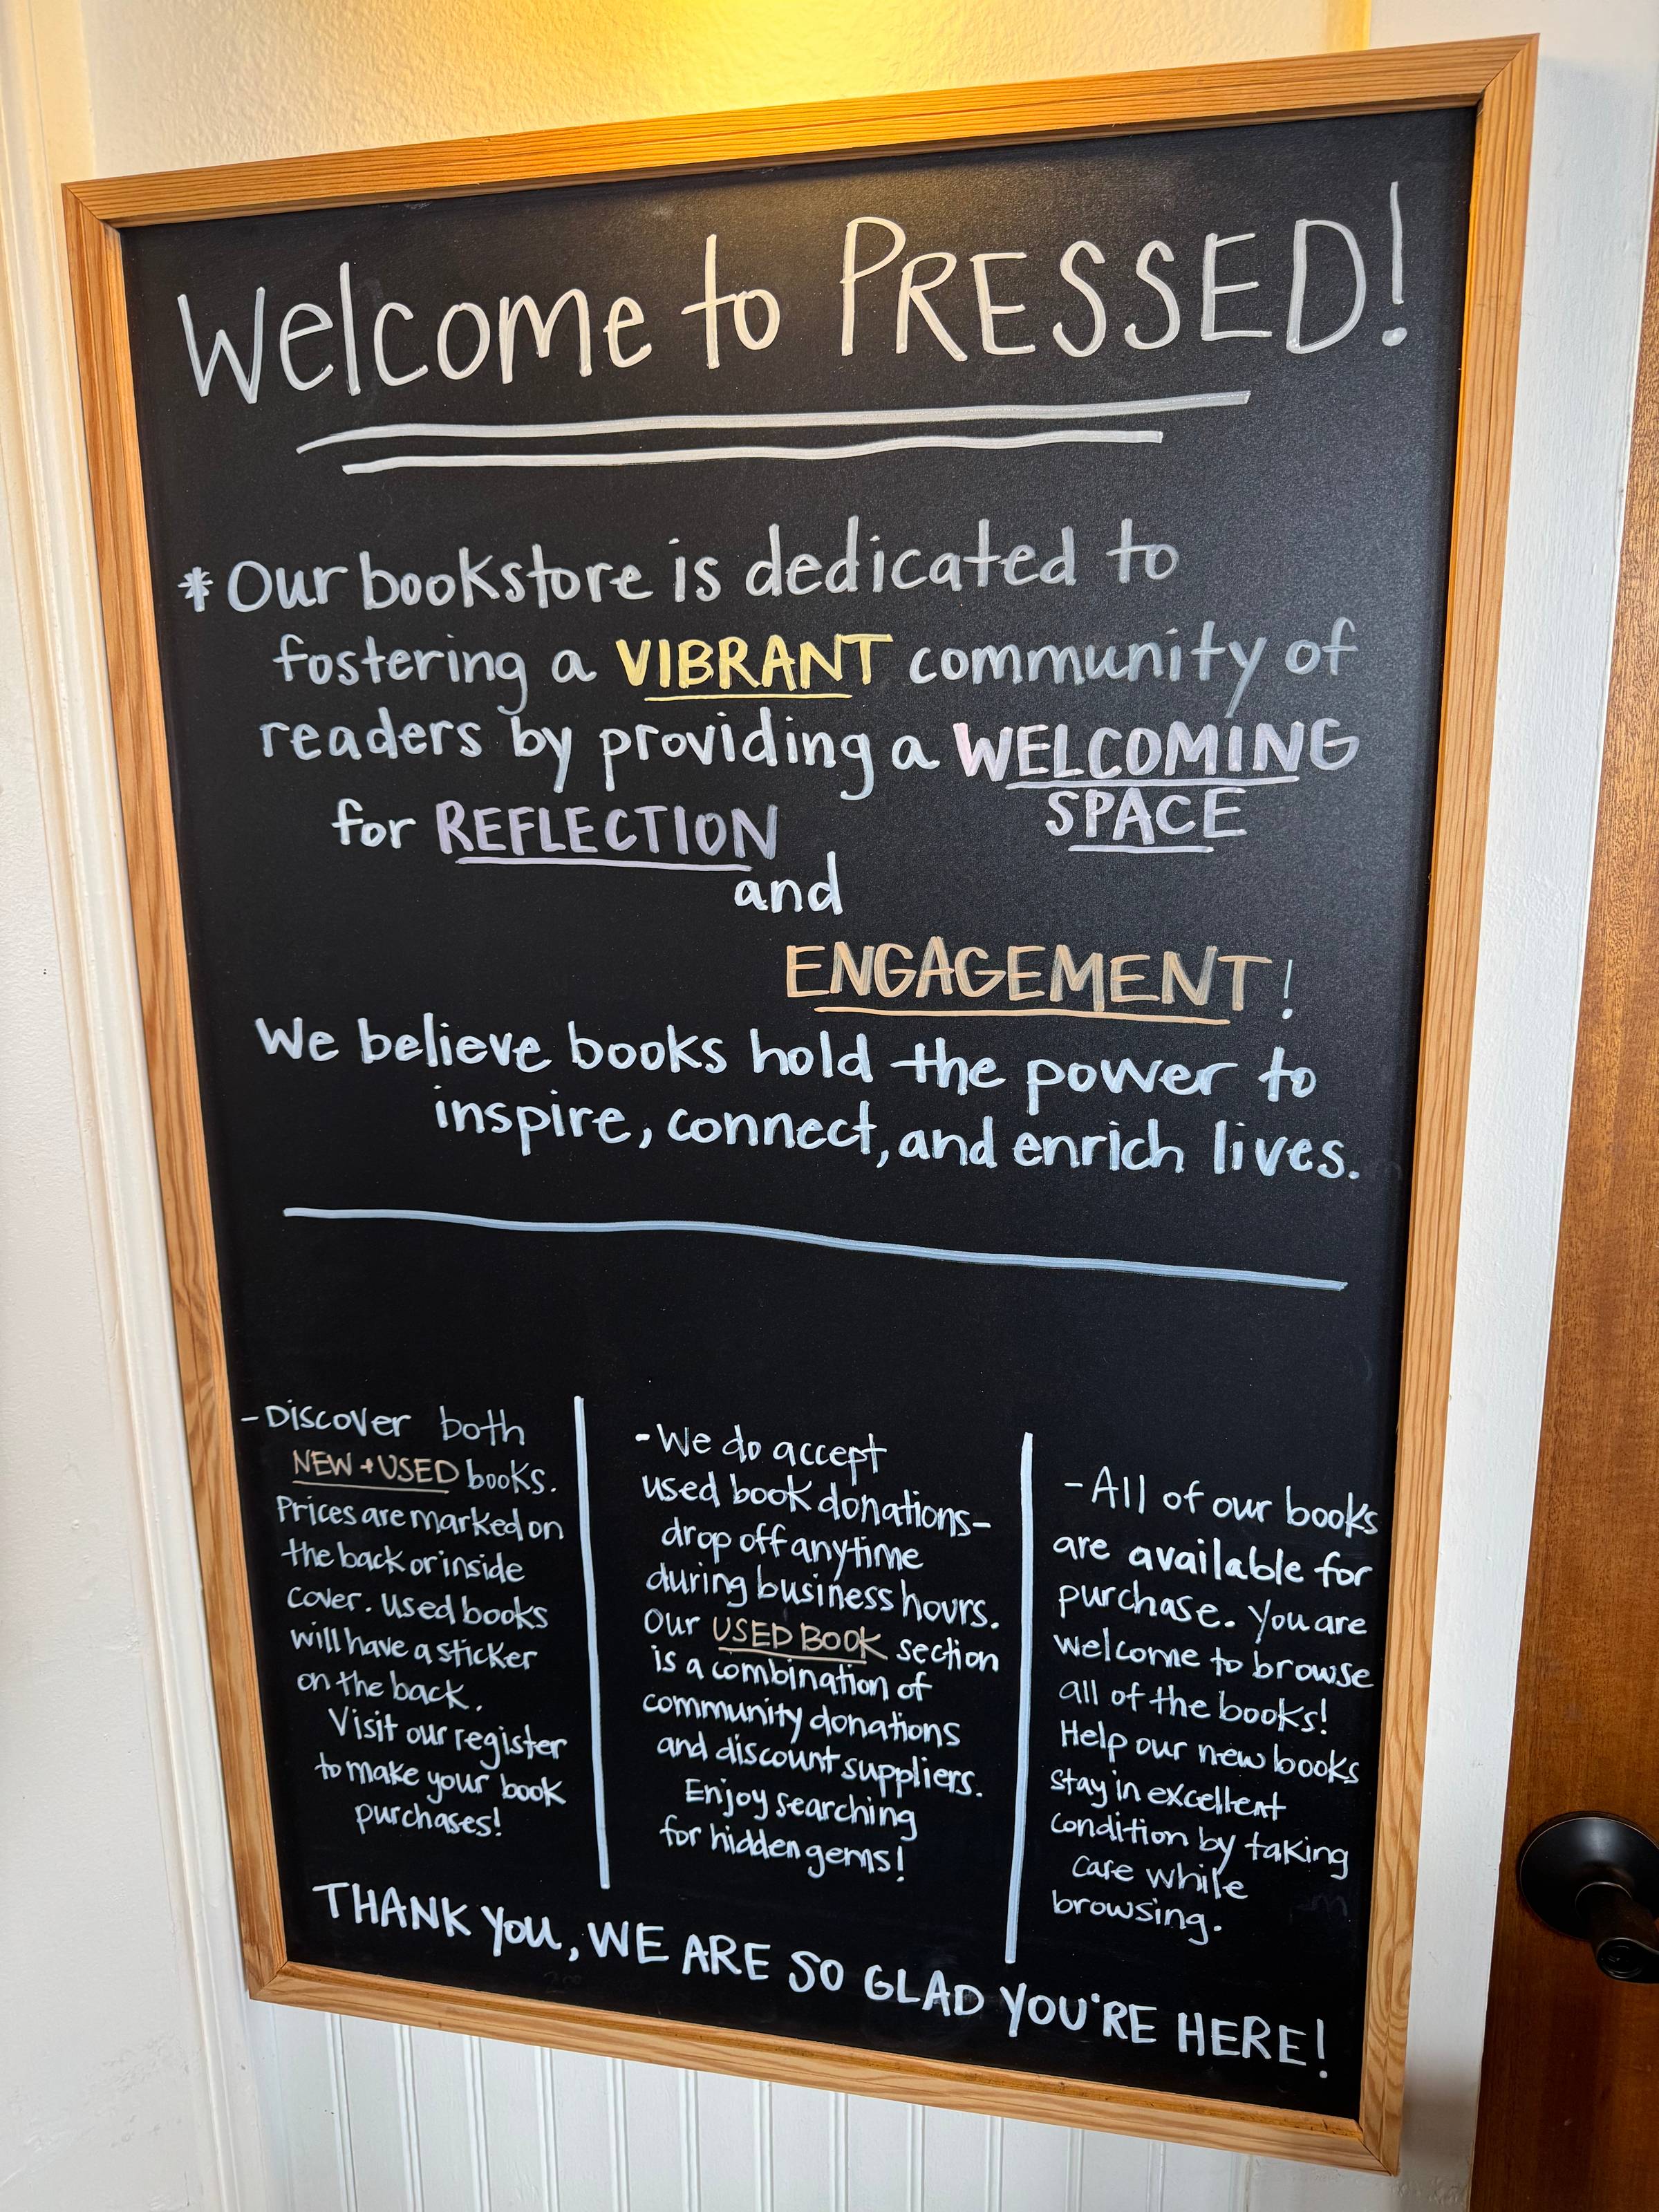 Welcome to PRESSED!
* Our bookstore is dedicated to
fostering a VIBRANT community of
readers by providing a WELCOMING
SPACE
for REFLECTION
and
ENGAGEMENT!
We believe books hold the power to
inspire, connect, and enrich lives.
- Discover both
NEW + USED books.
Prices are marked on
the back or inside
cover. Used books
will have a sticker
on the back.
Visit our register
to make your book
purchases!
- We do accept
used book donations-
drop off anytime
during business hours.
Our USED BOOK section
is a combination of
community donations
and discount suppliers.
Enjoy searching
for hidden gems!
- All of our books
are available for
purchase. You are
welcome to browse
all of the books!
Help our new books
stay in excellent
condition by taking
care while
browsing.
THANK YOU, WE ARE SO GLAD YOU'RE HERE!